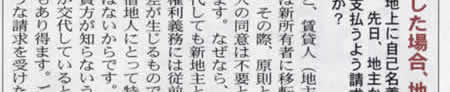 した場合、地
地上に自己名義
先日、地主か
支払うよう請求
か？
と、賃貸人（地主
は新所有者に移転
その際、原則と
人の同意は不要と
ます。なぜなら、
代しても新地主と
権利義務には従前
差が生じるもので
借地人にとって特
はないからです。
貴方が知らないう
が交代していると
もあり得ます。ご
うな請求を受けた